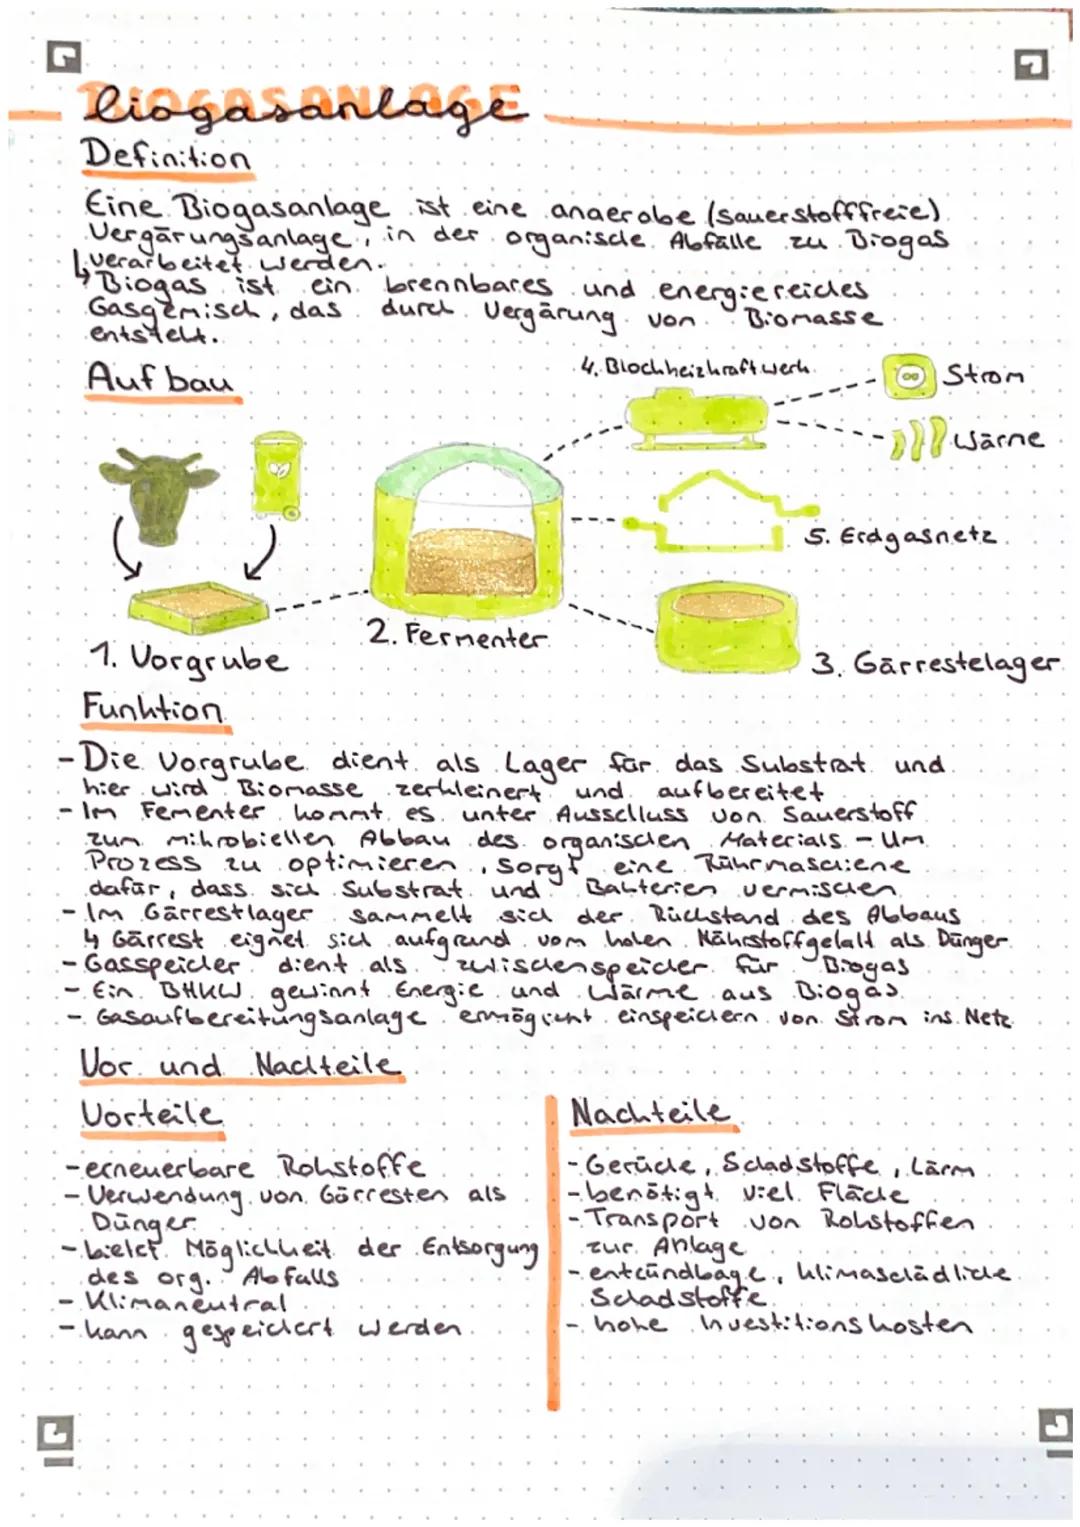 BIOGASANLAGE
biogasanlage
Definition
Eine Biogasanlage ist eine anaerobe (sauerstofffreie)
Vergärungsanlage, in der organische Abfälle zu Biogas
verarbeitet werden.
↳ Biogas ist ein brennbares und energiereiches
Gasgemisch, das durch Vergärung von Biomasse
entsteht.
Aufbau
4. Blockheizkraftwerk
Strom
Wärme
5. Erdgasnetz
2. Fermenter
1. Vorgrube
3. Gärrestelager
Funktion
- Die Vorgrube dient als Lager für das Substrat und
hier wird Biomasse zerkleinert und aufbereitet
- Im Fementer kommt es unter Ausschluss von Sauerstoff
zum mikrobiellen Abbau des organischen Materials - Um
Prozess zu optimieren, sorgt eine Rührmaschiene
dafür, dass sich Substrat und Bakterien vermischen
- Im Gärrestlager sammelt sich der Rückstand des Abbaus
↳ Gärrest eignet sich aufgrund vom hohen Nährstoffgehalt als Dünger
- Gasspeicher dient als zwischenspeicher für Biogas
- Ein BHKW gewinnt Energie und Wärme aus Biogas
- Gasaufbereitungsanlage ermöglicht einspeichern von Strom ins Netz
Vor und Nachteile
Vorteile
- erneuerbare Rohstoffe
- Verwendung von Gärresten als
Dünger
- bietet Möglichkeit der Entsorgung
des org. Abfalls
- Klimaneutral
- kann gespeichert werden
Nachteile
- Gerüche, Schadstoffe, Lärm
- benötigt viel Fläche
- Transport von Rohstoffen
zur Anlage
- entzündbage, klimaschädliche
Schadstoffe
- hohe Investitionskosten